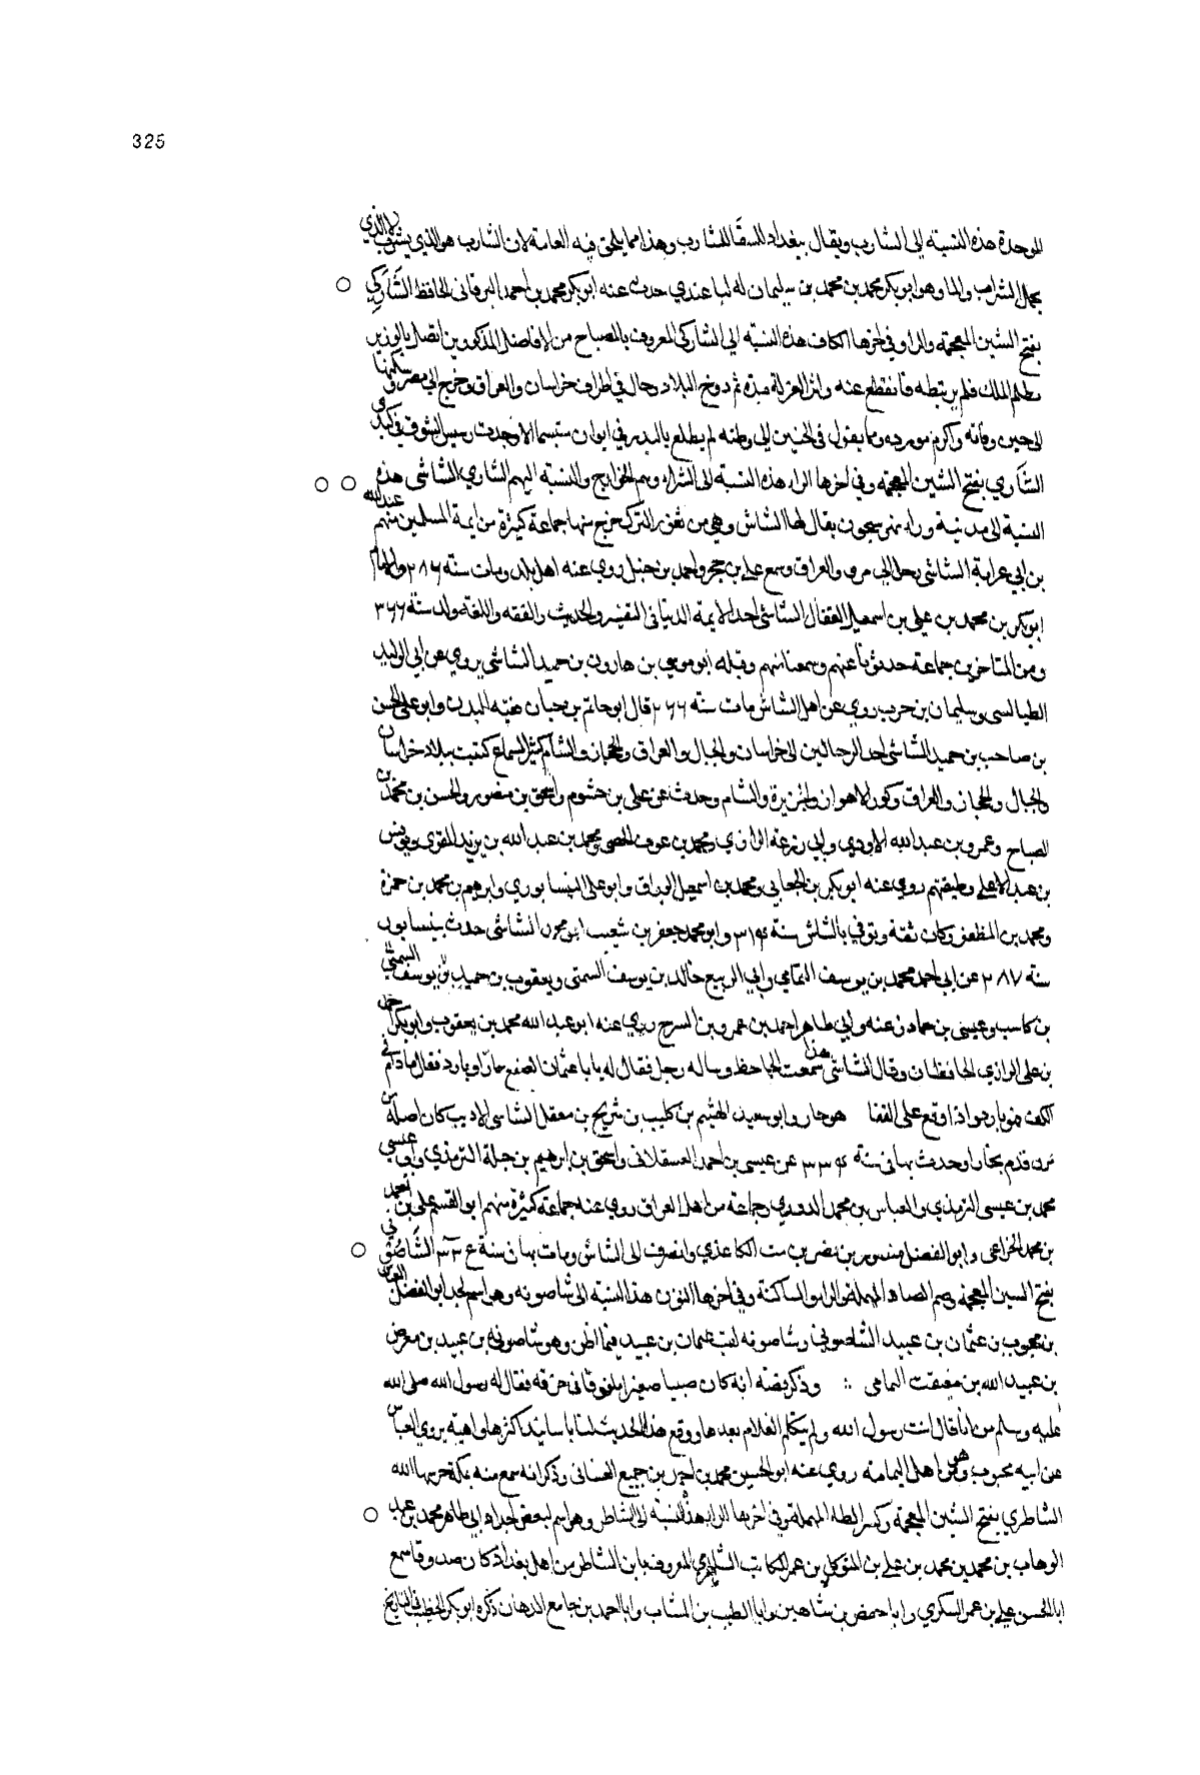 325
الموحدة هذه النسبة الى الشارب ويقال ببغداد للسقا الشارب وهذا مما يلحن فيه العامة لان الشارب هو الذي يشرب لا الذي
يحمل الشراب والما وهو ابو بكر محمد بن محمد بن سليمان له لنا عندي حدث عنه ابو بكر محمد بن احمد البرقاني الحافظ الشاركي
بفتح الشين المعجمة والراو في اخرها الكاف هذه النسبة الى الشاركي المعروف بالصباح من الافاضل المذكورين اتصل بالوزير
نظام الملك فلم يرتبطه فانقطع عنه واثر العزلة مدة ثم دوخ البلاد وجال في اطراف خراسان والعراق وخرج الى مصر وسكنها
الى حين وفاته واكرم مورده ومما يقول في الحنين الى وطنه لم يطلع بالبدر في ايوان
الشاري بفتح الشين المعجمة وفي اخرها الراء هذه النسبة الى الشراه وهم الخوارج والنسبة اليهم الشاري الشاشي هذه
النسبة الى مدينة وراء نهر سيحون يقال لها الشاش وهي من ثغور الترك خرج منها جماعة كثيرة من ايمة المسلمين منهم عبد الله
بن ابي عرابة الشاشي رحل الى مرو والعراق وسمع علي بن حجر واحمد بن حنبل روى عنه اهل بلده ومات سنة ٢٨٦ والامام
ابو بكر بن محمد بن علي بن اسمعيل القفال الشاشي احد الايمة الدنيا في التفسير والحديث والفقه واللغة ولد سنة ٣٦٦
ومن المتاخرين جماعة حدثونا عنهم وسمعنا منهم وقبله ابو موسى بن هارون بن حميد الشاشي يروي عن ابي الوليد
الطيالسي وسليمان بن حرب روى عن اهل الشاش مات سنة ٢٦٦ قال ابو حاتم بن حبان وابو علي الحسن
بن صاحب بن حميد الشاشي احد الرحالين الى خراسان والجبال والعراق والحجاز والشام كثير السماع كتبت ببلاد خراسان
والجبال والحجاز والعراق وكور الاهواز والجزيرة والشام وحدث عن علي بن خشرم واسحق بن منصور والحسن بن محمد بن
الصباح وعمرو بن عبد الله الاودي وابي زرعة الرازي ومحمد بن عوف الحمصي ومحمد بن عبد الله بن يزيد المقري ويونس
بن عبد الاعلى وطبقتهم روى عنه ابو بكر بن الجعابي ومحمد بن اسمعيل الوراق وابو علي النيسابوري وابرهيم بن محمد بن حمزة
ومحمد بن المظفر وكان ثقة وتوفي بالشاش سنة ٣١٤ وابو محمد جعفر بن شعيب ابو محمد الشاشي حدث بنيسابور
سنة ٢٨٧ عن ابي احمد محمد بن يوسف وابي الربيع خالد بن يوسف السمتي ويعقوب بن حميد
بن كاسب وعيسى بن حماد زغبه وابي طاهر احمد بن عمرو بن السرح روى عنه ابو عبد الله محمد بن يعقوب وابو بكر احمد
بن علي الرازي الحافظان وقال الشاشي هذا سمعت الجاحظ وساله رجل فقال له يا با عثمان الصفع حار او بارد فقال ما دام في
الكف هو بارد واذا وقع على القفا هو حار وابو سعيد الهيثم بن كليب بن شريح بن معقل الشاشي الاديب كان اصله من
مرو قدم بخارا وحدث بها في سنة ٣٣٤ عن عيسى بن احمد العسقلاني واسحق بن ابرهيم بن جبلة الترمذي وابي عيسى
محمد بن عيسى الترمذي والعباس بن محمد الدوري وجماعة من اهل العراق روى عنه جماعة كثيرة منهم ابو القسم علي بن احمد
بن محمد الخزاعي وابو الفضل منصور بن نصر بن مت الكاغذي وانصرف الى الشاش ومات بها في سنة ٣٣٤ الشاصوني
بفتح السين المعجمة وضم الصاد المهملة والواو الساكنة وفي اخرها النون هذا النسبة الى شاصونه وهو اسم لجد ابو الفضل العباس
بن محبوب بن عثمان بن عبيد الشاصوني وشاصونه لقب عثمان بن عبيد فيما اظن وهو شاصونه بن عبيد بن معرض
بن عبيد الله بن معيقب اليمامي :: وذكر بقصته انه كان صبيا صغيرا ملفوفا في خرقه فقال له رسول الله صلى الله
عليه وسلم من انا قال انت رسول الله ولم يتكلم الغلام بعدها ووقع هذا الحديث لنا باسانيد اكثرها واهية يروي العباس
عن ابيه محبوب وهو من اهل اليمامة روى عنه ابو الحسين محمد بن احمد بن جميع الغساني وذكر انه سمع منه بمكة حرسها الله
الشاطري بفتح الشين المعجمة وكسر الطاء المهملة وفي اخرها الراء هذه النسبة الى الشاطر وهو اسم لبعض اجداد ابي طاهر محمد بن عبد
الوهاب بن محمد بن محمد بن علي بن المتوكل بن عمر الكاتب الشاطري المعروف بابن الشاطر من اهل بغداد كان صدوقا سمع
ابا الحسن علي بن عمر السكري وابا حفص بن شاهين وابا الطيب بن المنتاب وابا احمد بن جامع الدهان ذكره ابو بكر الخطيب في التاريخ